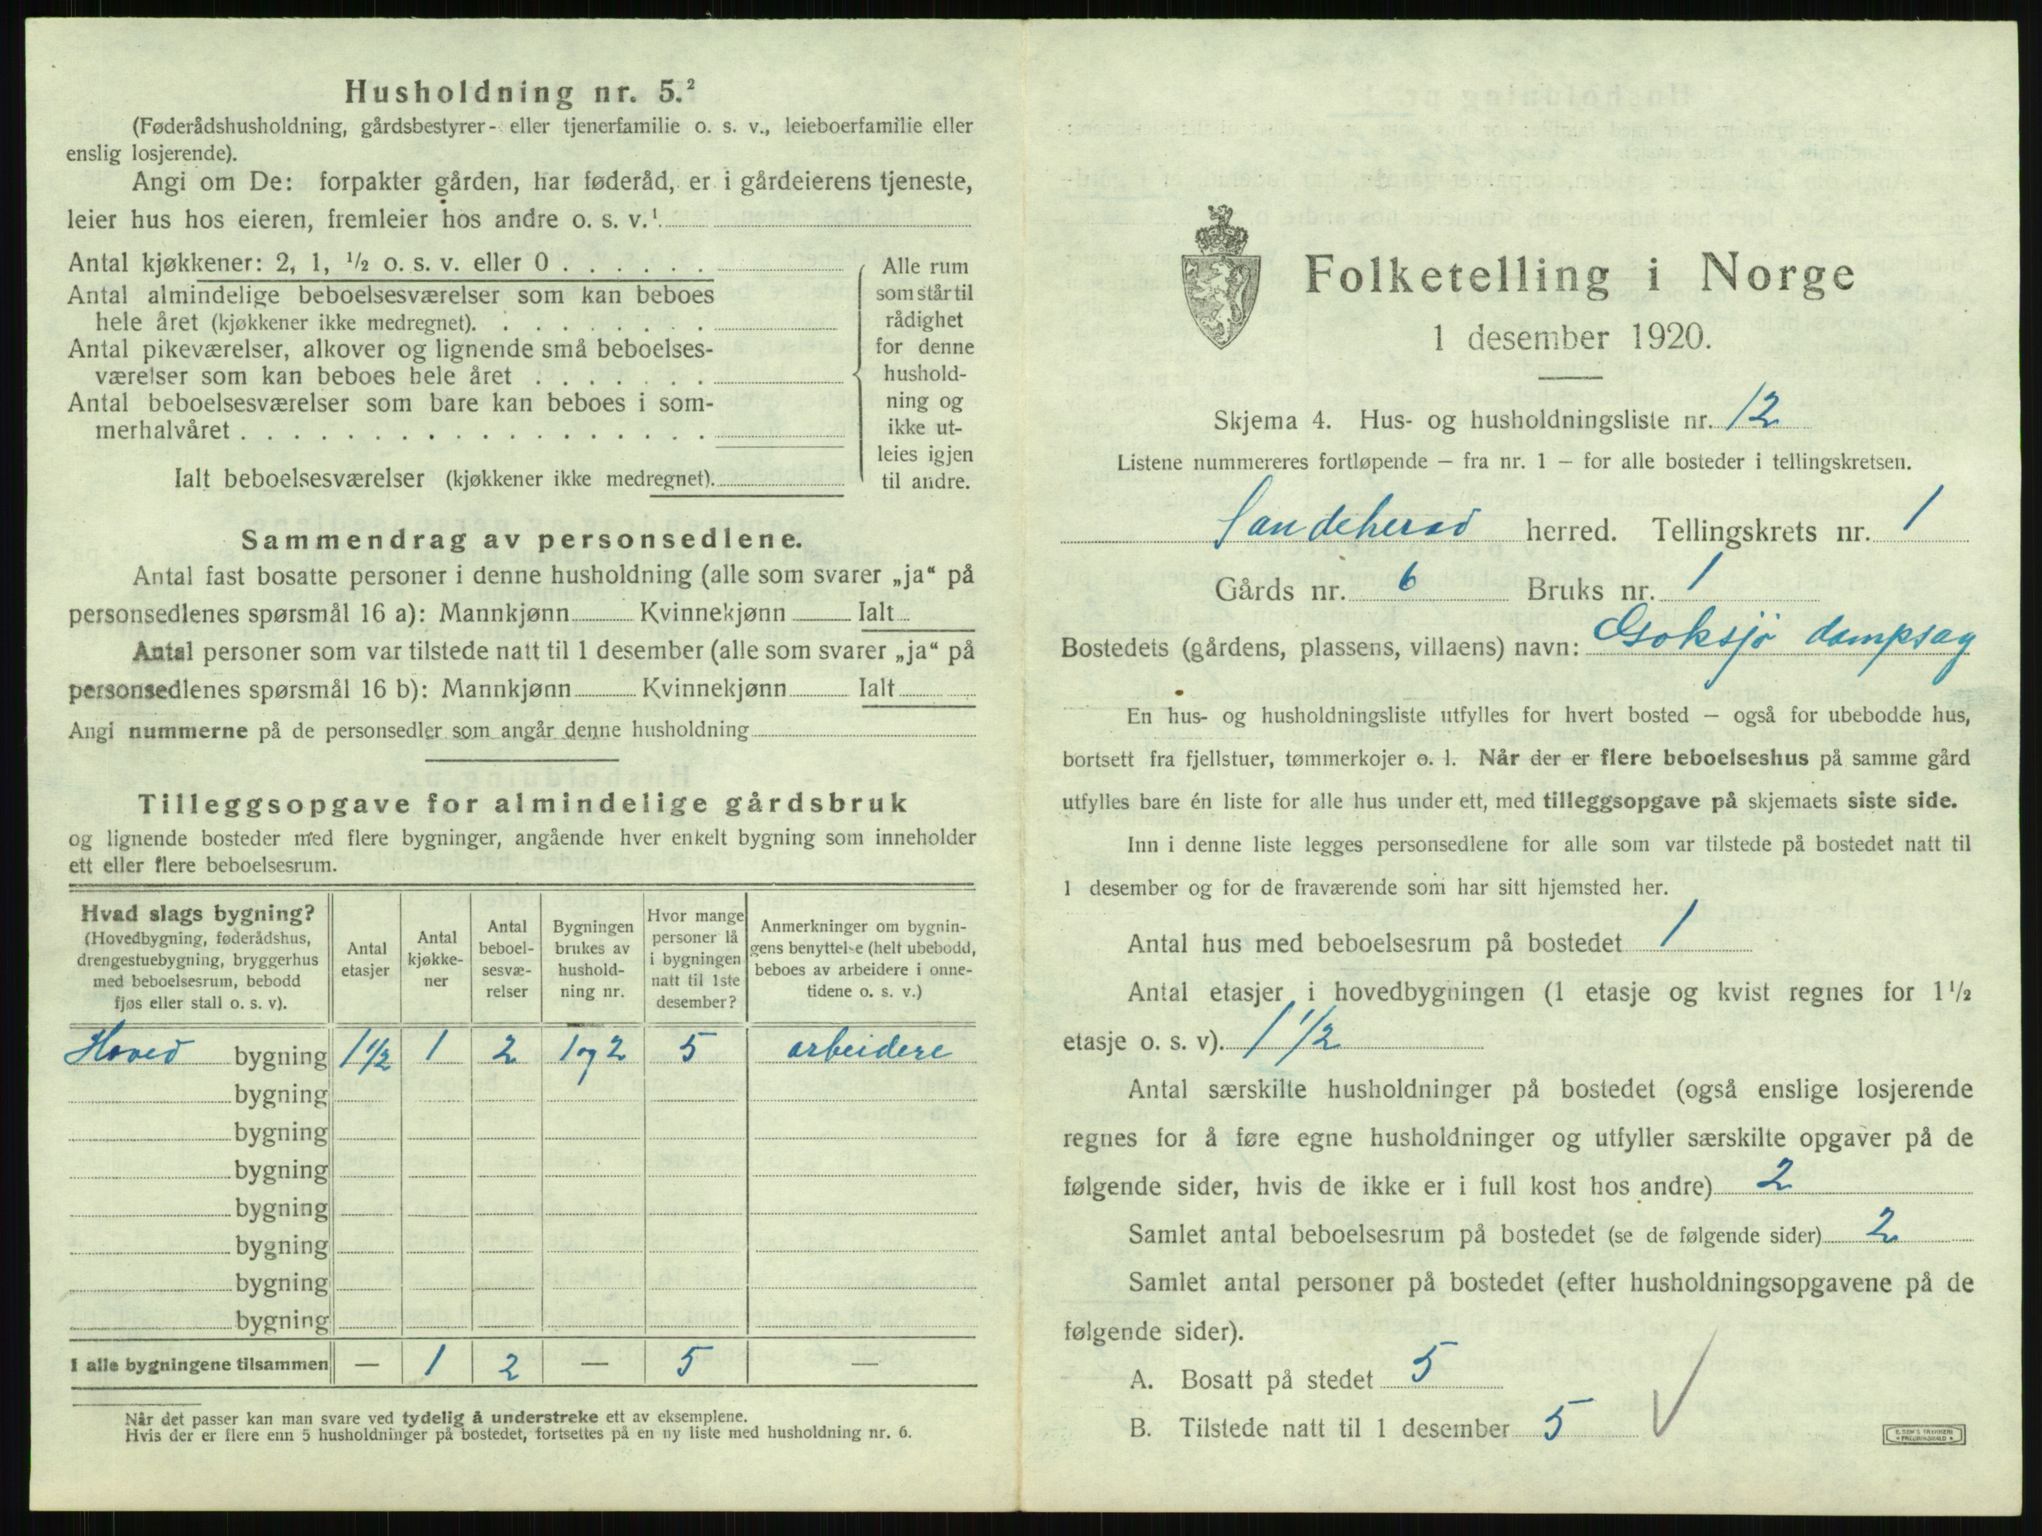 Husholdning nr. 5.²
(Føderådshusholdning, gårdsbestyrer- eller tjenerfamilie o. s. v., leieboerfamilie eller
enslig losjerende).
Angi om De: forpakter gården, har føderåd, er i gårdeierens tjeneste,
leier hus hos eieren, fremleier hos andre o. s. v.¹
Antal kjøkkener: 2, 1, ½ o. s. v. eller 0 . . . . . .
Antal almindelige beboelsesværelser som kan beboes
hele året (kjøkkener ikke medregnet). . . . . . . . .
Antal pikeværelser, alkover og lignende små beboelses-
værelser som kan beboes hele året . . . . . . .
Antal beboelsesværelser som bare kan beboes i som-
merhalvåret . . . . . . . . . . . . . . . . . .
Ialt beboelsesværelser (kjøkkener ikke medregnet).
Alle rum
som står til
rådighet
for denne
hushold-
ning og
ikke ut-
leies igjen
til andre.
Sammendrag av personsedlene.
Antal fast bosatte personer i denne husholdning (alle som svarer „ja“ på
personsedlenes spørsmål 16 a): Mannkjønn Kvinnekjønn Ialt
Antal personer som var tilstede natt til 1 desember (alle som svarer „ja“ på
personsedlenes spørsmål 16 b): Mannkjønn Kvinnekjønn Ialt
Angi nummerne på de personsedler som angår denne husholdning
Tilleggsopgave for almindelige gårdsbruk
og lignende bosteder med flere bygninger, angående hver enkelt bygning som inneholder
ett eller flere beboelsesrum.
Hvad slags bygning?
(Hovedbygning, føderådshus,
drengestuebygning, bryggerhus
med beboelsesrum, bebodd
fjøs eller stall o. s. v).
Antal
etasjer
Antal
kjøkke-
ner
Antal
beboel-
sesvæ-
relser
Bygningen
brukes av
hushold-
ning nr.
Hvor mange
personer lå
i bygningen
natt til 1ste
desember?
Anmerkninger om bygnin-
gens benyttelse (helt ubebodd,
beboes av arbeidere i onne-
tidene o. s. v.)
Hoved bygning 1 1/2 1 2 1 og 2 5 arbeidere
bygning
bygning
bygning
bygning
bygning
bygning
bygning
I alle bygningene tilsammen — 1 2 — 5 —
Når det passer kan man svare ved tydelig å understreke ett av eksemplene.
Hvis der er flere enn 5 husholdninger på bostedet, fortsettes på en ny liste med husholdning nr. 6.
Folketelling i Norge
1 desember 1920.
Skjema 4. Hus- og husholdningsliste nr. 12
Listene nummereres fortløpende — fra nr. 1 — for alle bosteder i tellingskretsen.
Sandeherad herred. Tellingskrets nr. 1
Gårds nr. 6 Bruks nr. 1
Bostedets (gårdens, plassens, villaens) navn: Goksjø dampsag
En hus- og husholdningsliste utfylles for hvert bosted — også for ubebodde hus,
bortsett fra fjellstuer, tømmerkojer o. l. Når der er flere beboelseshus på samme gård
utfylles bare én liste for alle hus under ett, med tilleggsopgave på skjemaets siste side.
Inn i denne liste legges personsedlene for alle som var tilstede på bostedet natt til
1 desember og for de fraværende som har sitt hjemsted her.
Antal hus med beboelsesrum på bostedet 1
Antal etasjer i hovedbygningen (1 etasje og kvist regnes for 1½
etasje o. s. v). 1 1/2
Antal særskilte husholdninger på bostedet (også enslige losjerende
regnes for å føre egne husholdninger og utfyller særskilte opgaver på de
følgende sider, hvis de ikke er i full kost hos andre) 2
Samlet antal beboelsesrum på bostedet (se de følgende sider) 2
Samlet antal personer på bostedet (efter husholdningsopgavene på de
følgende sider).
A. Bosatt på stedet 5
B. Tilstede natt til 1 desember 5